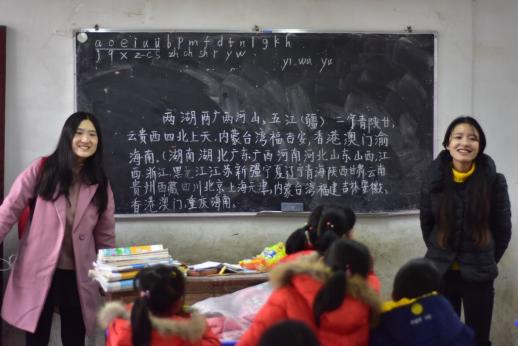 a o e i u ü b p m f d t n l g k h
j q x z c s zh ch sh r y w
yi wu yu
两湖两广两河山,五江(疆)二宁青陕甘,
云贵西四北上天,内蒙台湾福吉安,香港澳门渝
海南.(湖南湖北广东广西河南河北山东山西,江
西浙江黑龙江江苏新疆宁夏辽宁青海陕西甘肃云南
贵州西藏四川北京上海天津,内蒙台湾福建吉林安徽,
香港澳门,重庆海南.